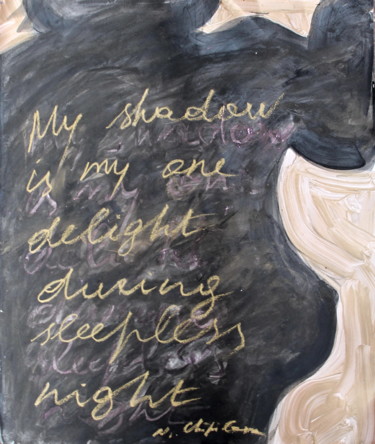 My shadow
is my one
delight
during
sleepless
night
N.